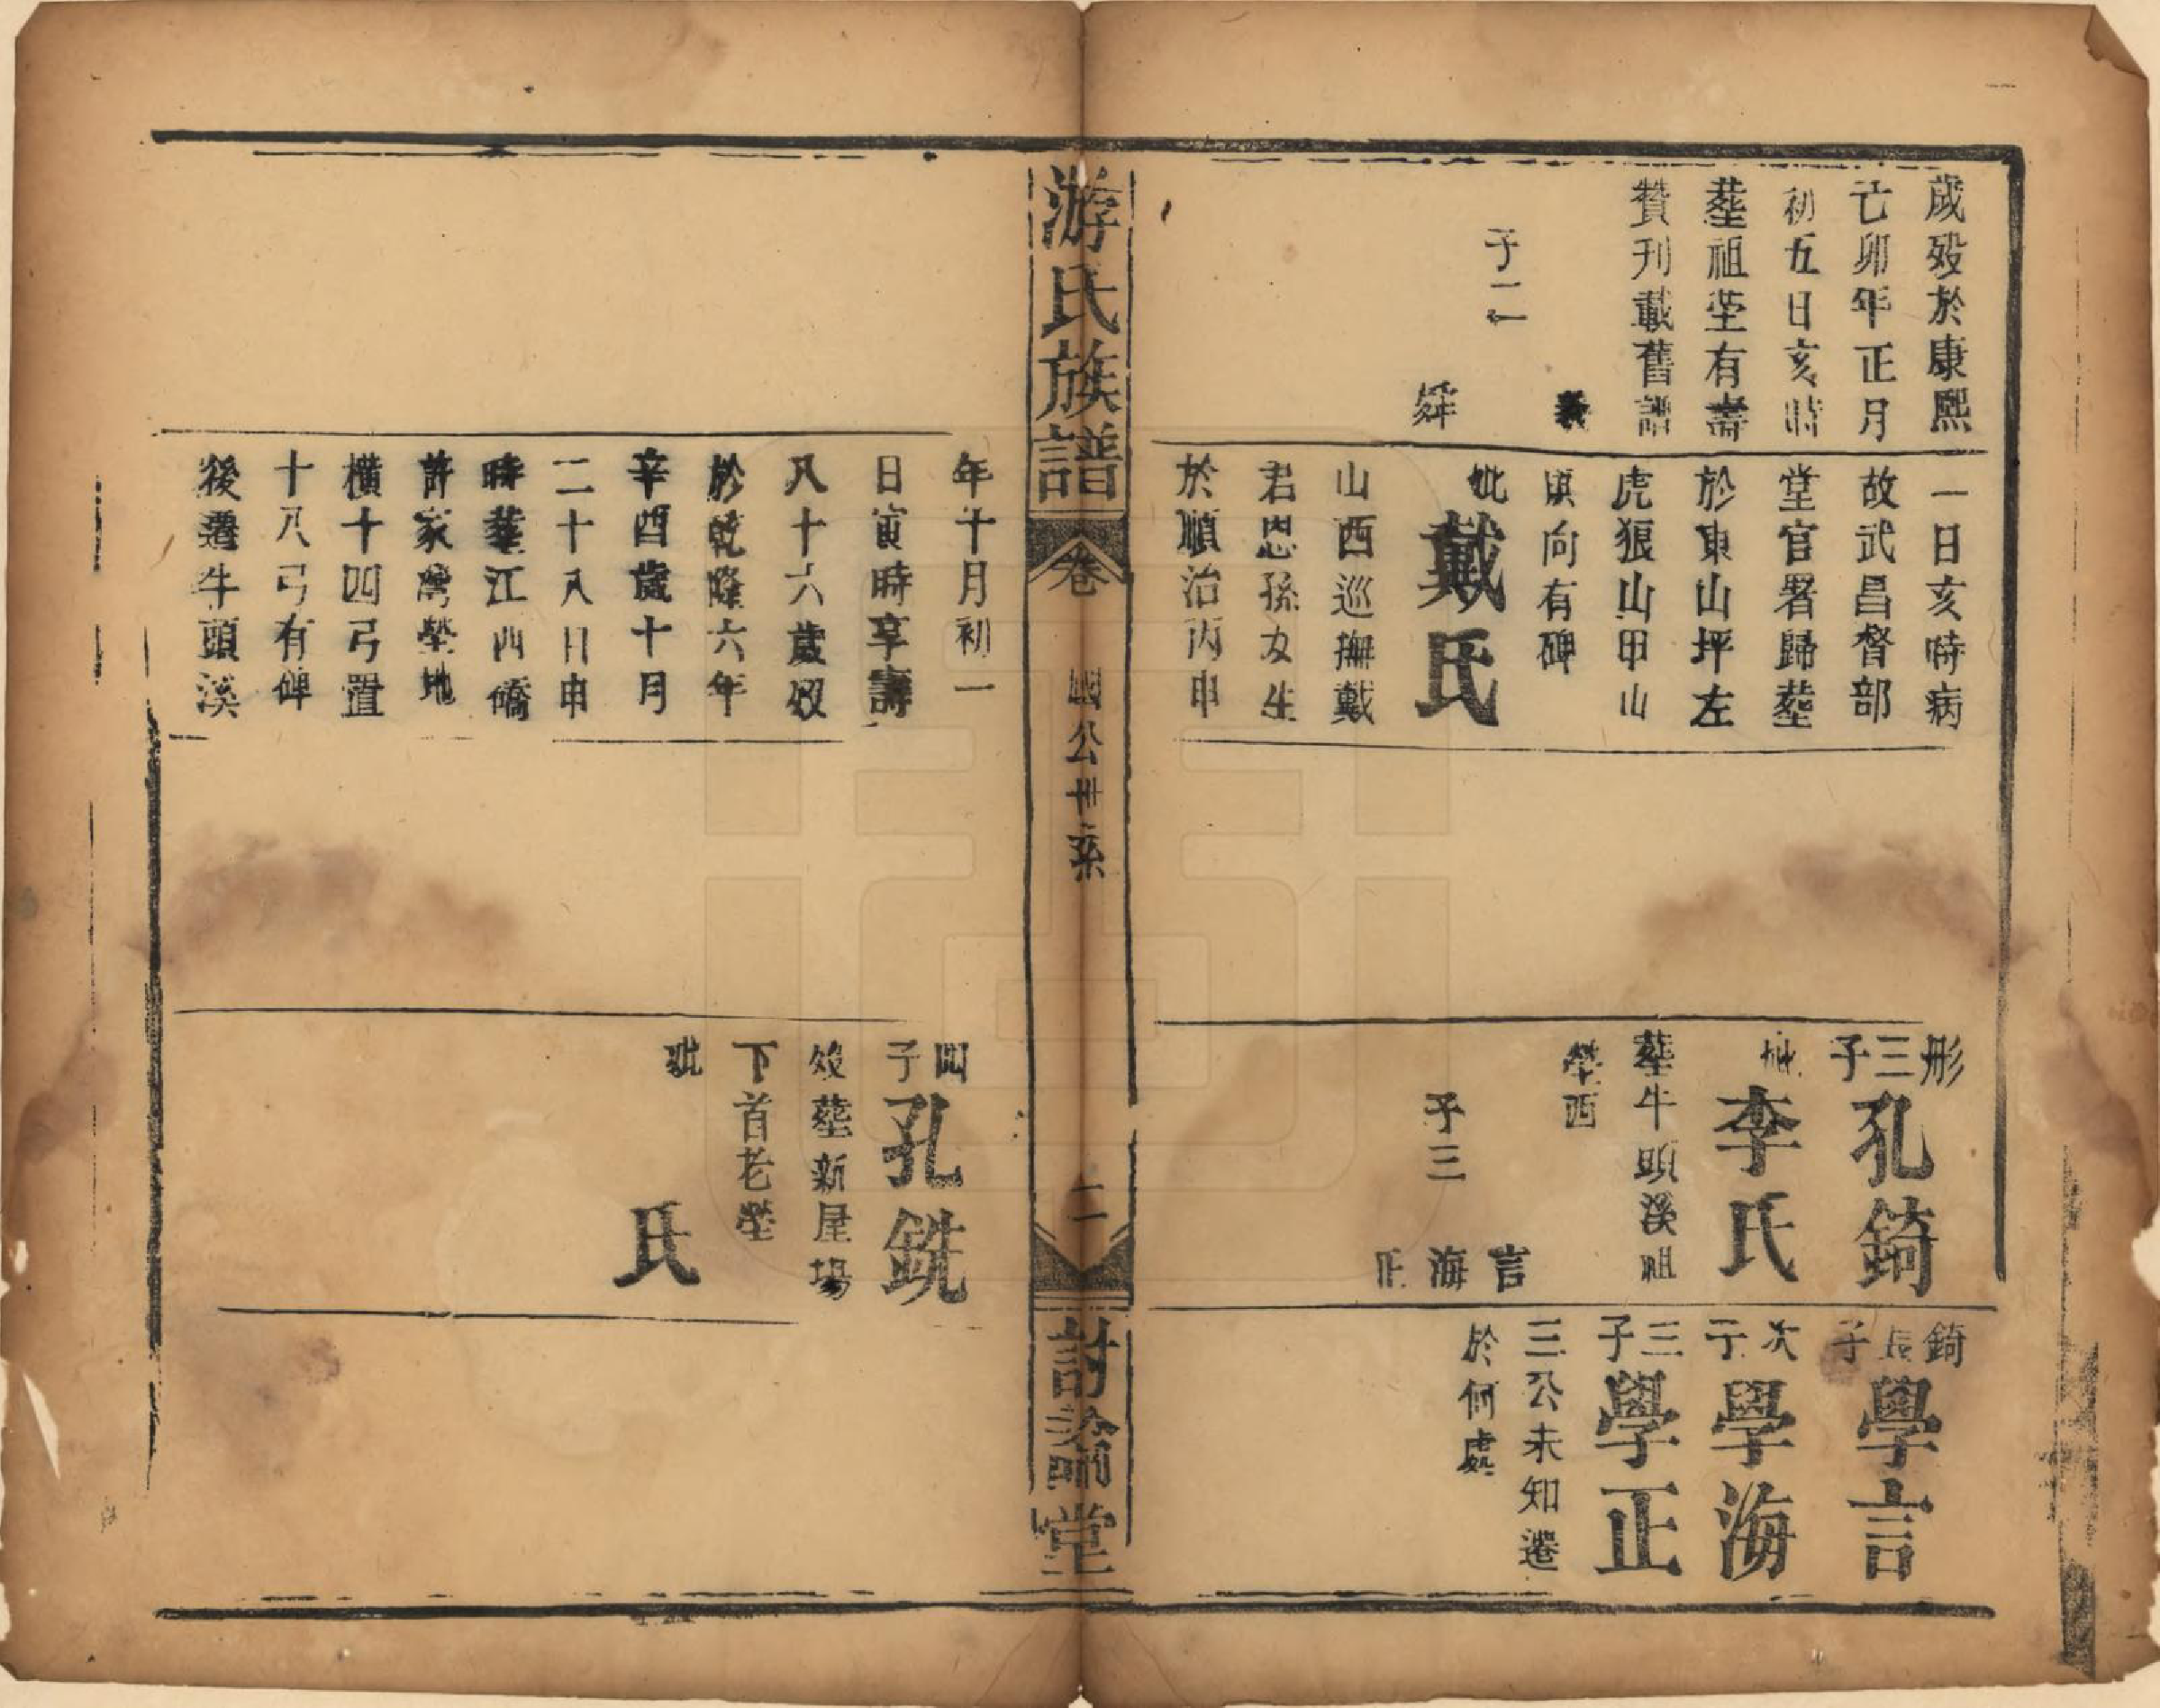 歲歿於康熙
亡卯年正月
初五日亥時
塟祖塋有壽
贊刋載舊譜
子二
義
舜
一日亥時病
故武昌督部
堂官署歸塟
於東山坪左
虎狼山甲山
向有碑
妣戴氏
山西巡撫戴
君恩孫女生
於順治丙申
彤三子孔錡
妣李氏
塟牛頭溪祖
塋西
子三
言
海
正
錡長子學言
次子學海
三子學正
三公未知遷
於何處
游氏族譜
卷
國公卅系
二
討論堂
年十月初一
日寅時享壽
八十六歲歿
於乾隆六年
辛酉歲十月
二十八日申
時塟江西僑
許家灣塋地
橫十四弓置
十八弓有碑
後遷牛頭溪
四子孔銑
歿塟新屋場
下首老塋
妣 氏